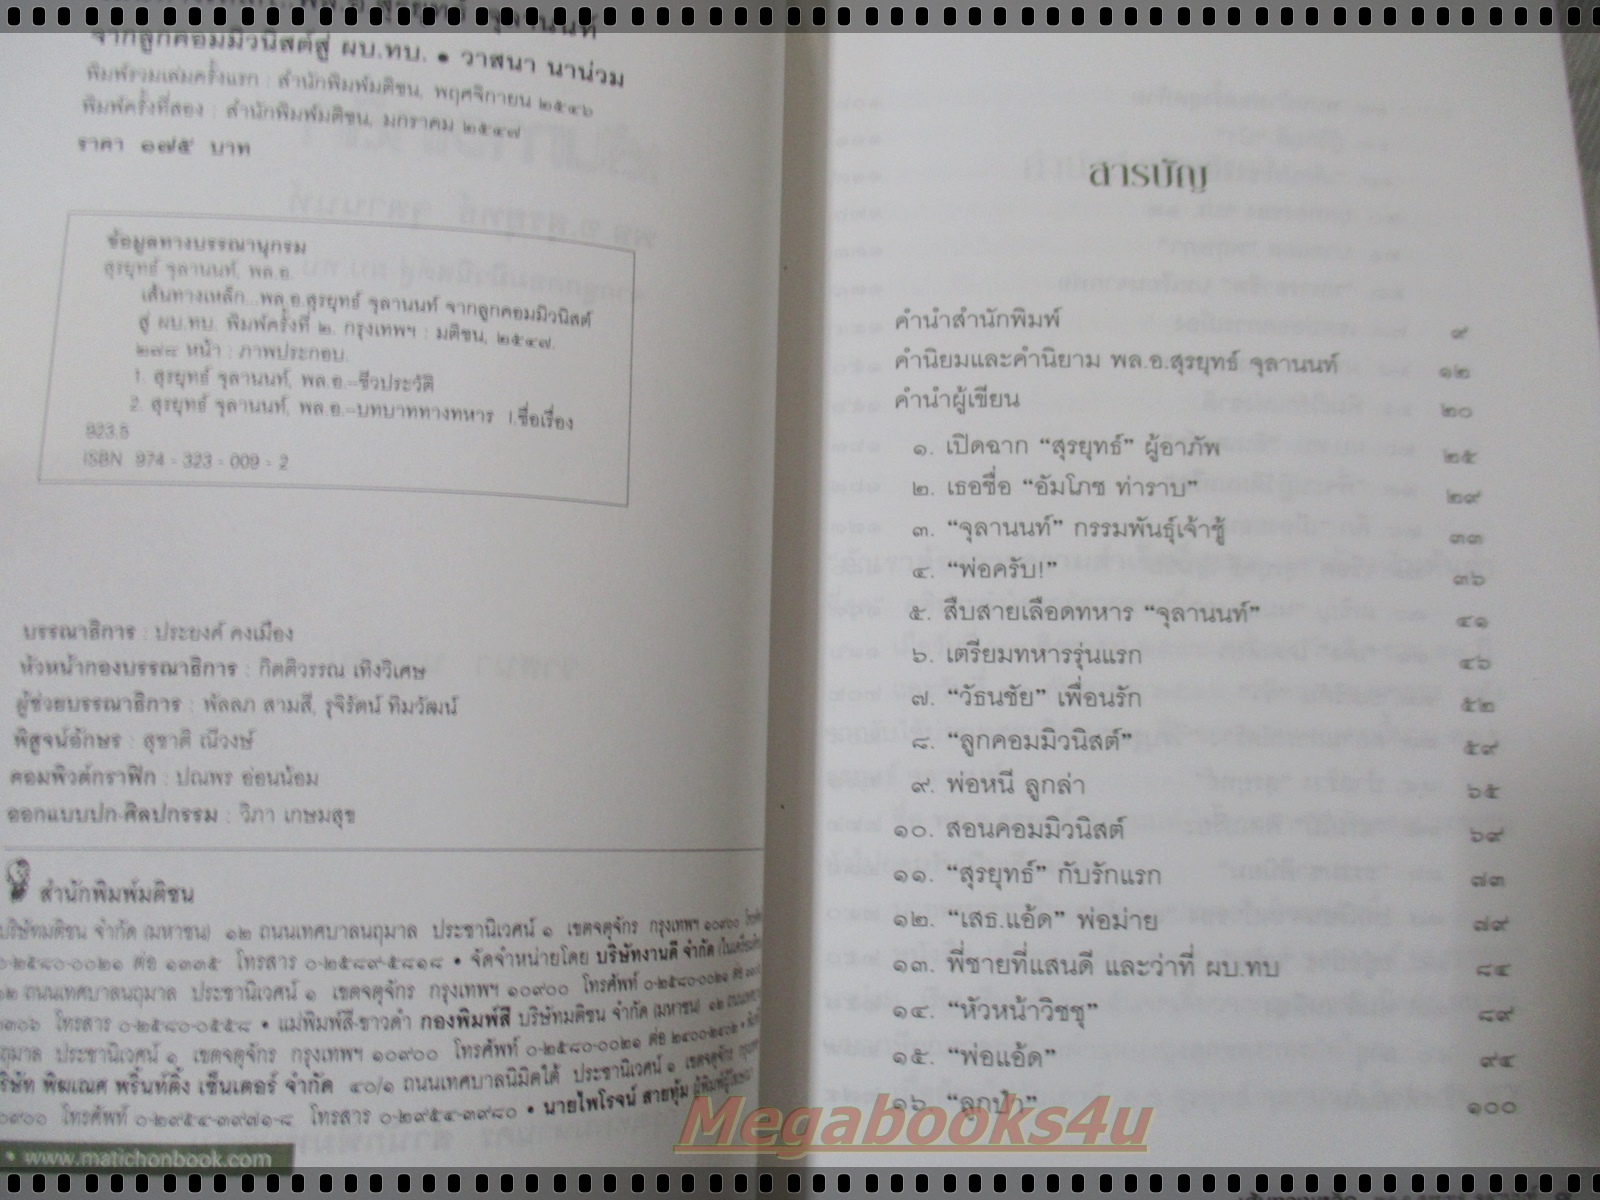 พล.อ.สุรยุทธ์ จุลานนท์
จากลูกคอมมิวนิสต์สู่ ผบ.ทบ. • วาสนา นาน่วม
พิมพ์รวมเล่มครั้งแรก : สำนักพิมพ์มติชน, พฤศจิกายน ๒๕๔๖
พิมพ์ครั้งที่สอง : สำนักพิมพ์มติชน, มกราคม ๒๕๔๗
ราคา ๑๗๕ บาท
ข้อมูลทางบรรณานุกรม
สุรยุทธ์ จุลานนท์, พล.อ.
เส้นทางเหล็ก...พล.อ.สุรยุทธ์ จุลานนท์ จากลูกคอมมิวนิสต์
สู่ ผบ.ทบ. พิมพ์ครั้งที่ ๒. กรุงเทพฯ : มติชน, ๒๕๔๗.
๒๗๘ หน้า : ภาพประกอบ.
1. สุรยุทธ์ จุลานนท์, พล.อ.=ชีวประวัติ
2. สุรยุทธ์ จุลานนท์, พล.อ.=บทบาททางทหาร I.ชื่อเรื่อง
923.5
ISBN 974 - 323 - 009 - 2
บรรณาธิการ : ประยงค์ คงเมือง
หัวหน้ากองบรรณาธิการ : กิตติวรรณ เทิงวิเศษ
ผู้ช่วยบรรณาธิการ : พัลลภ สามสี, รุจิรัตน์ ทิมวัฒน์
พิสูจน์อักษร : สุชาติ ณีวงษ์
คอมพิวต์กราฟิก : ปณพร อ่อนน้อม
ออกแบบปก-ศิลปกรรม : วิภา เกษมสุข
สำนักพิมพ์มติชน
บริษัทมติชน จำกัด (มหาชน) ๑๒ ถนนเทศบาลนฤมาล ประชานิเวศน์ ๑ เขตจตุจักร กรุงเทพฯ ๑๐๙๐๐
๐-๒๕๘๐-๐๐๒๑ ต่อ ๑๓๓๕ โทรสาร ๐-๒๕๘๙-๕๘๑๘ • จัดจำหน่ายโดย บริษัทงานดี จำกัด
๑๒ ถนนเทศบาลนฤมาล ประชานิเวศน์ ๑ เขตจตุจักร กรุงเทพฯ ๑๐๙๐๐ โทรศัพท์ ๐-๒๕๘๐-๐๐๒๑ ต่อ
๓๓๐๖ โทรสาร ๐-๒๕๘๐-๐๕๕๘ • แม่พิมพ์สี-ขาวดำ กองพิมพ์สี บริษัทมติชน จำกัด (มหาชน) ๑๒
ประชานิเวศน์ ๑ เขตจตุจักร กรุงเทพฯ ๑๐๙๐๐ โทรศัพท์ ๐-๒๕๘๐-๐๐๒๑ ต่อ ๒๔๐๐-๒๔๐๒ •
พิฆเณศ พริ้นท์ติ้ง เซ็นเตอร์ จำกัด ๔๐/๑ ถนนเทศบาลนิมิตใต้ ประชานิเวศน์ ๑ เขตจตุจักร
โทรศัพท์ ๐-๒๙๕๔-๓๙๗๑-๘ โทรสาร ๐-๒๙๕๔-๓๙๘๐ • นายไพโรจน์ สายทุ้ม
• www.matichonbook.com
สารบัญ
คำนำสำนักพิมพ์ ๙
คำนิยมและคำนิยาม พล.อ.สุรยุทธ์ จุลานนท์ ๑๒
คำนำผู้เขียน ๒๐
๑. เปิดฉาก “สุรยุทธ์” ผู้อาภัพ ๒๕
๒. เธอชื่อ “อัมโภช ท่าราบ” ๒๙
๓. “จุลานนท์” กรรมพันธุ์เจ้าชู้ ๓๓
๔. “พ่อครับ!” ๓๖
๕. สืบสายเลือดทหาร “จุลานนท์” ๔๑
๖. เตรียมทหารรุ่นแรก ๔๖
๗. “วัธนชัย” เพื่อนรัก ๕๒
๘. “ลูกคอมมิวนิสต์” ๕๙
๙. พ่อหนี ลูกล่า ๖๕
๑๐. สอนคอมมิวนิสต์ ๖๙
๑๑. “สุรยุทธ์” กับรักแรก ๗๓
๑๒. “เสธ.แอ้ด” พ่อม่าย ๗๙
๑๓. พี่ชายที่แสนดี และว่าที่ ผบ.ทบ ๘๔
๑๔. “หัวหน้าวิชชุ” ๘๙
๑๕. “พ่อแอ้ด” ๙๔
๑๖. “ลูกป๋า” ๑๐๐
Megabooks4u